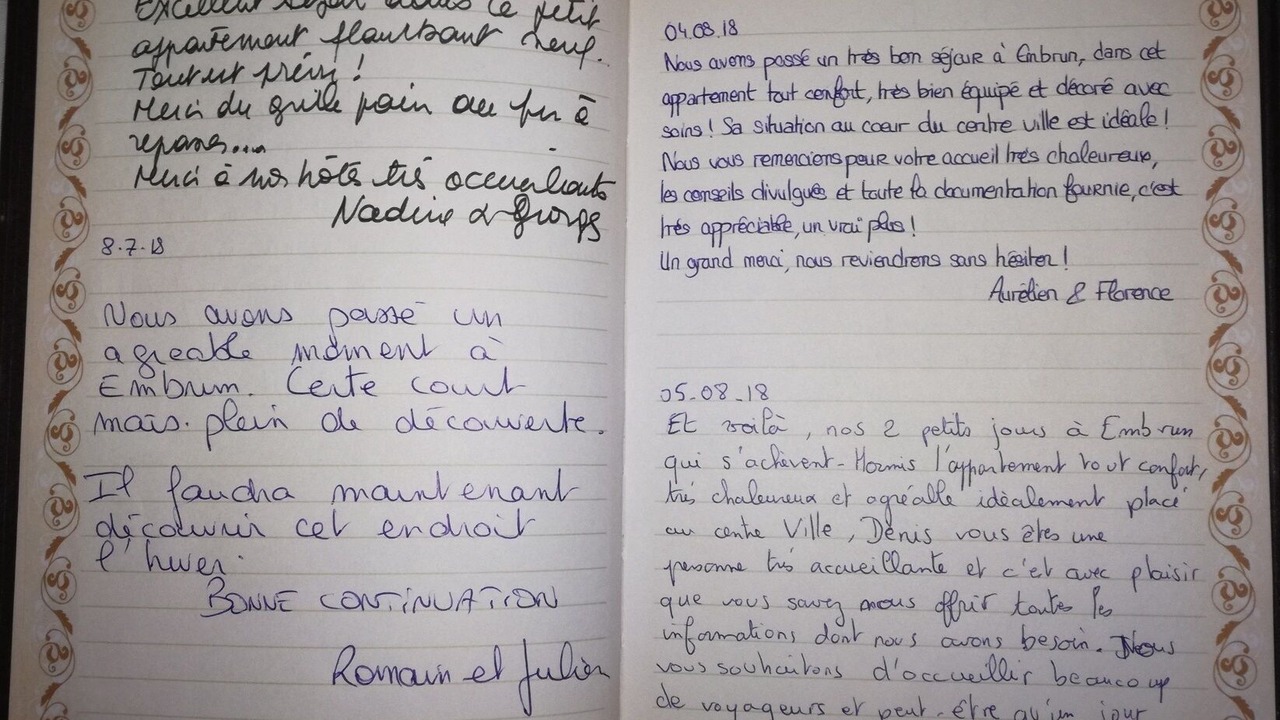 Excellent séjour dans ce petit
appartement flambant neuf.
Tout est prévu !
Merci du grille pain au fer à
repasser...
Merci à nos hôtes très accueillants
Nadine &
8.7.18
Nous avons passé un
agreable moment à
Embrun. Certe court
mais plein de découverte.
Il faudra maintenant
découvrir cet endroit
l'hiver.
BONNE CONTINUATION
Romain et Julien
04.08.18
Nous avons passé un très bon séjour à Embrun, dans cet
appartement tout confort, très bien équipé et décoré avec
soins ! Sa situation au coeur du centre ville est idéale !
Nous vous remercions pour votre accueil très chaleureux,
les conseils divulgués et toute la documentation fournie, c'est
très appréciable, un vrai plus !
Un grand merci, nous reviendrons sans hésiter !
Aurélien & Florence
05-08-18
Et voilà, nos 2 petits jours à Embrun
qui s'achèvent - Hormis l'appartement tout confort,
très chaleureux et agréable idéalement placé
au centre Ville, Denis vous êtes une
personne très accueillante et c'et avec plaisir
que vous savez nous offrir toutes les
informations dont nous avons besoin. Nous
vous souhaitons d'accueillir beaucoup
de voyageurs et peut-être qu'un jour